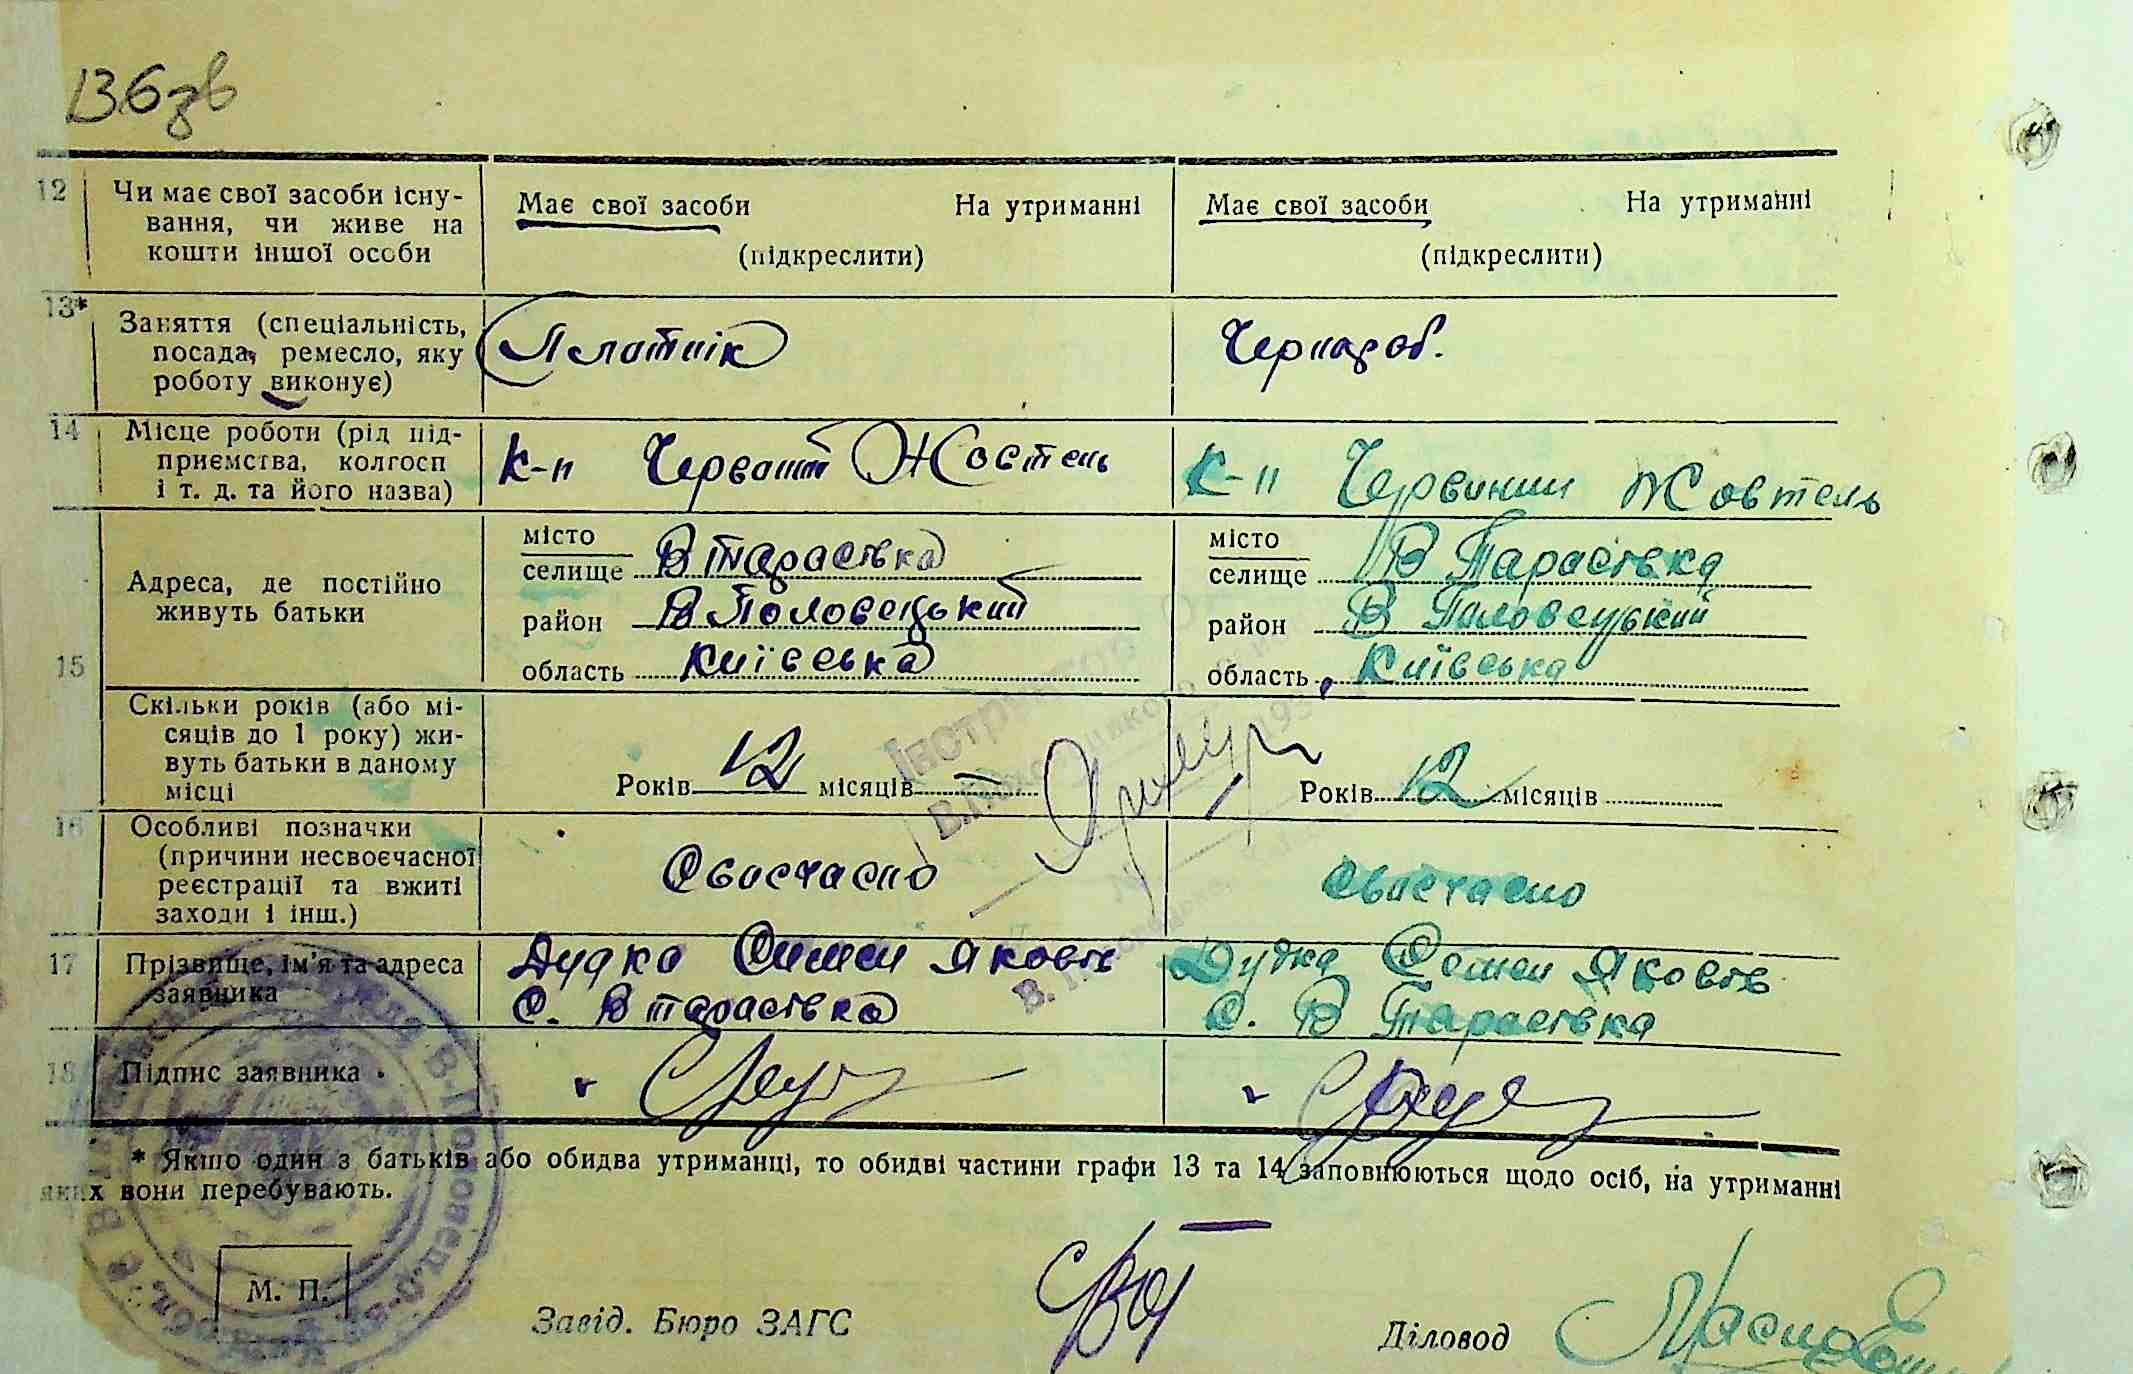 136зв
12 Чи має свої засоби існу- Має свої засоби На утриманні Має свої засоби На утриманні
вання, чи живе на
кошти іншої особи (підкреслити) (підкреслити)
13* Заняття (спеціальність, Плотнік Чорнороб.
посада, ремесло, яку
роботу виконує)
14 Місце роботи (рід під- К-п Червоний Жовтень К-п Червоний Жовтень
приємства, колгосп
і т. д. та його назва)
15 Адреса, де постійно
живуть батьки
місто місто
селище В Тарасівка селище В Тарасівка
район В Половецький район В Половецький
область Київська область Київська
Скільки років (або мі-
сяців до 1 року) жи-
вуть батьки в даному
місці Років 12 місяців Років 12 місяців
16 Особливі позначки
(причини несвоєчасної Своєчасно Своєчасно
реєстрації та вжиті
заходи і інш.)
17 Прізвище, ім'я та адреса Дудка Семен Яковіч Дудка Семен Яковіч
заявника С. В Тарасівка С. В Тарасівка
18 Підпис заявника
* Якщо один з батьків або обидва утриманці, то обидві частини графи 13 та 14 заповнюються щодо осіб, на утриманні
яких вони перебувають.
М. П.
Завід. Бюро ЗАГС Діловод